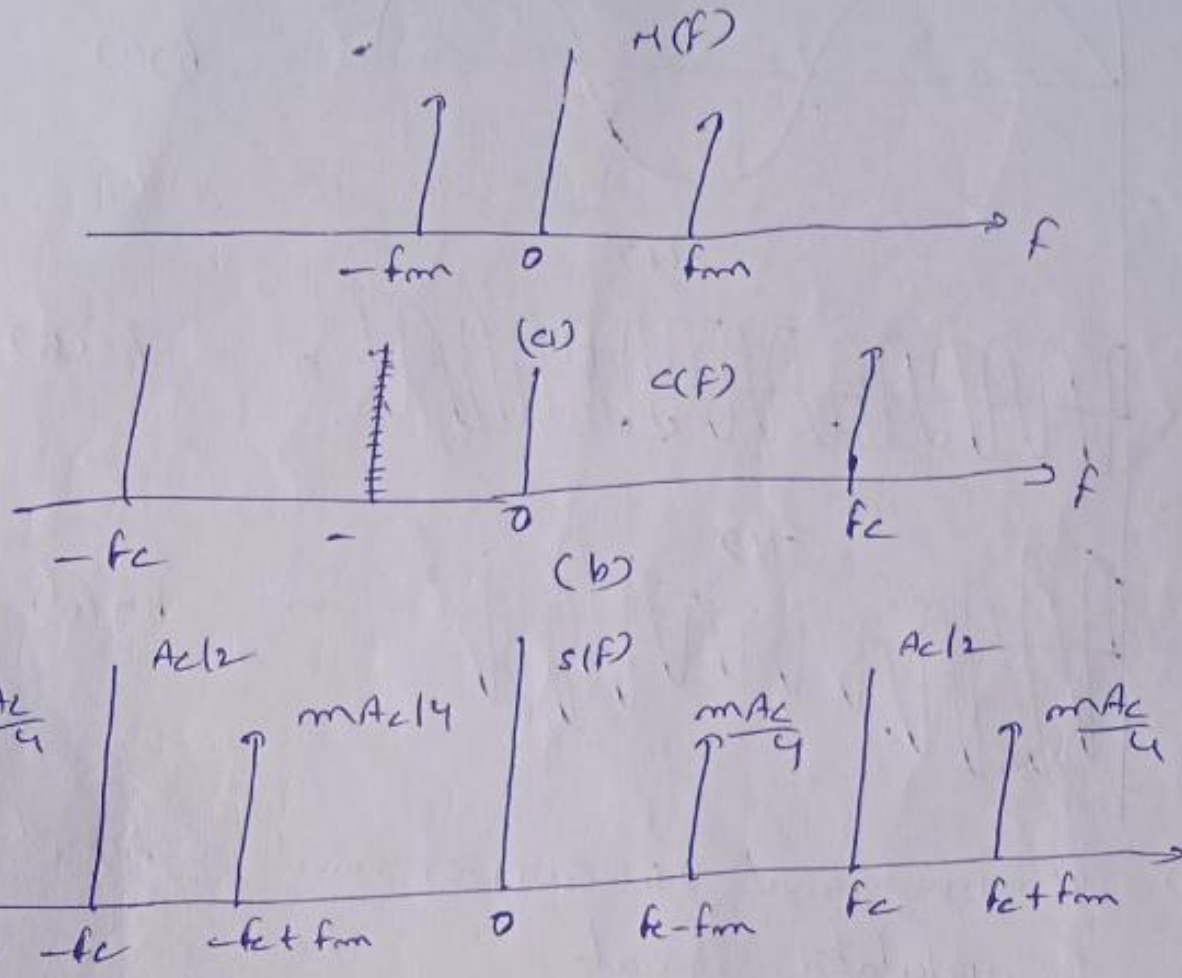 M(f)
-fm 0 fm f
(a)
c(f)
-fc - 0 fc f
(b)
Ac/2 s(f) Ac/2
mAc/4 mAc/4 mAc/4
-fc -fc+fm 0 fc-fm fc fc+fm